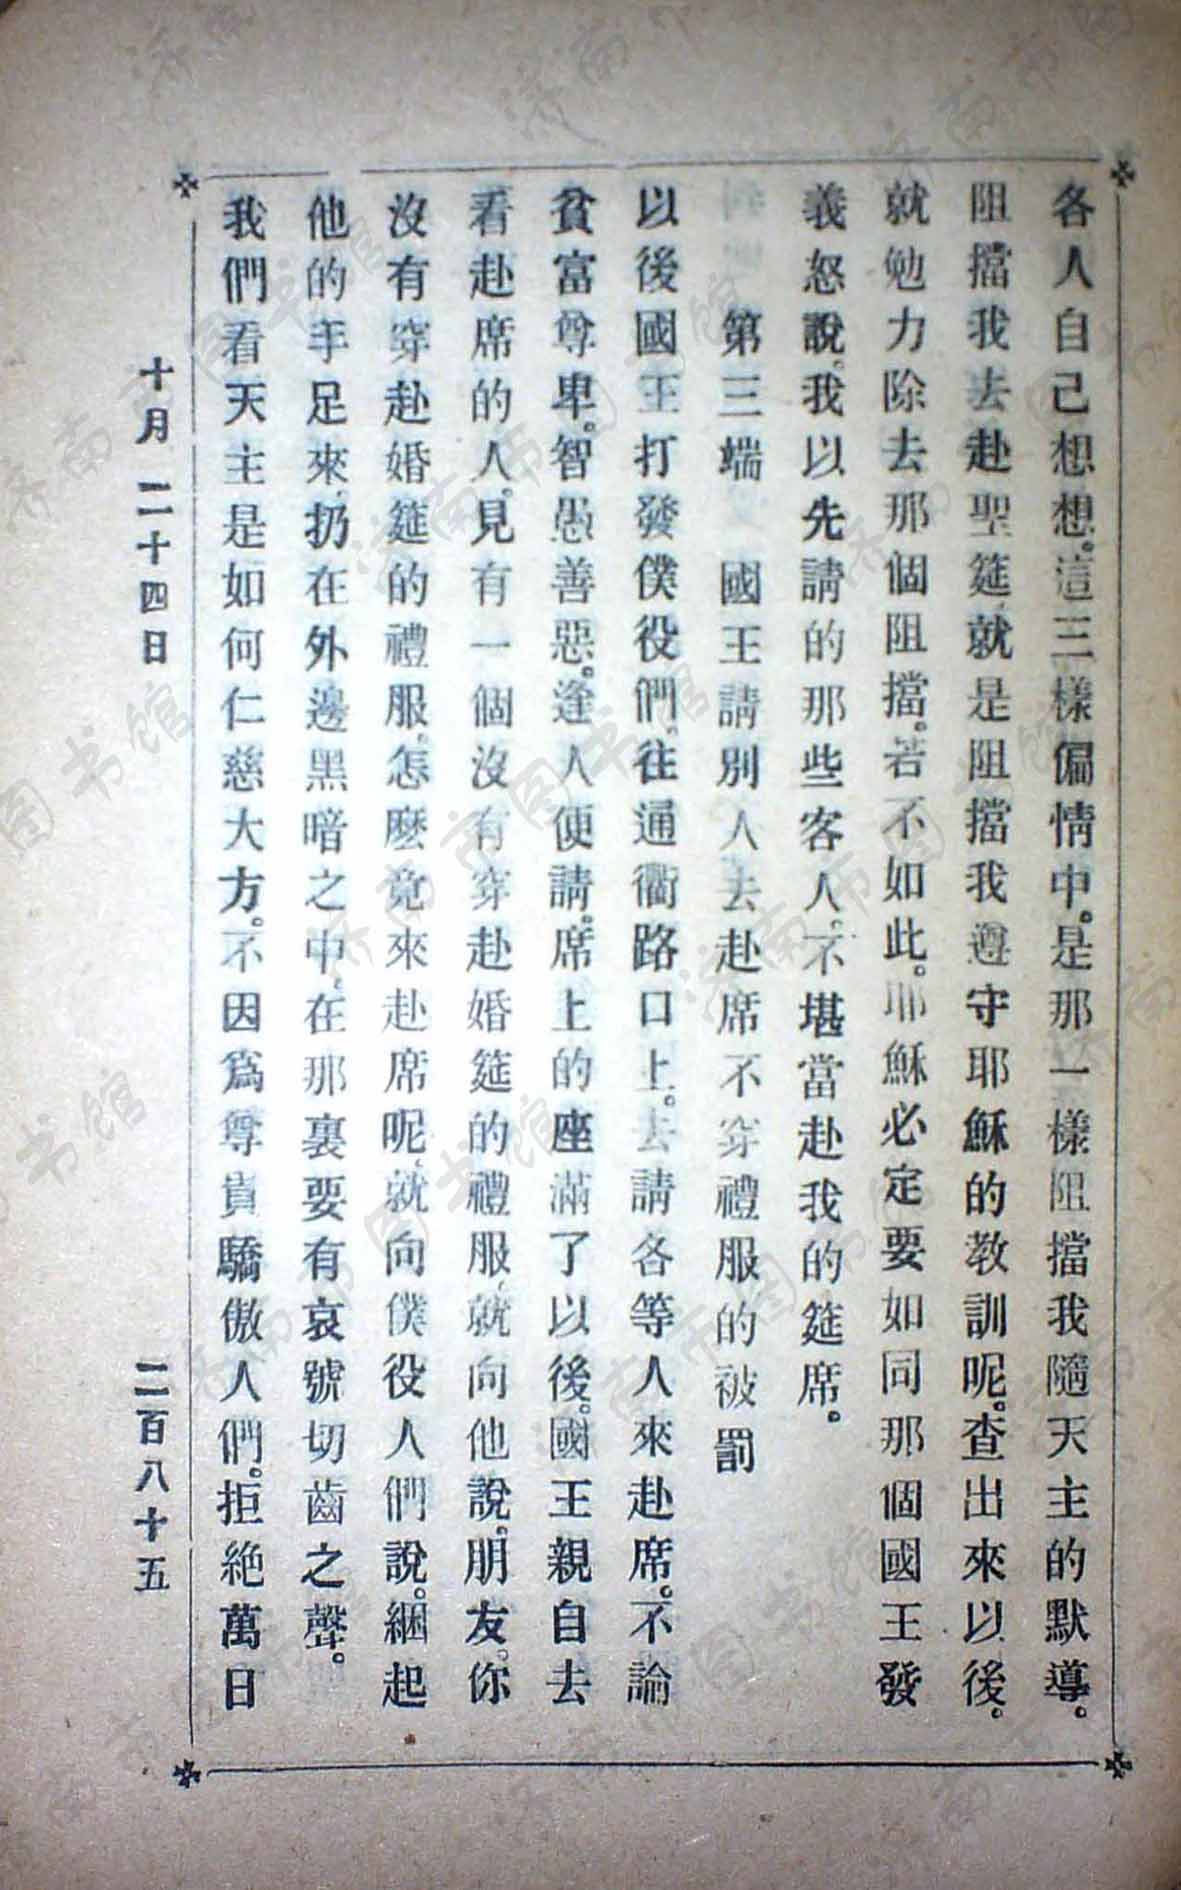 各人自己想想。這三樣偏情中。是那一樣阻擋我隨天主的默導。
阻擋我去赴聖筵、就是阻擋我遵守耶穌的教訓呢。查出來以後。
就勉力除去那個阻擋。若不如此。耶穌必定要如同那個國王發
義怒說。我以先請的那些客人。不堪當赴我的筵席。
第三端 國王請別人去赴席不穿禮服的被罰
以後國王打發僕役們。往通衢路口上。去請各等人來赴席。不論
貧富尊卑。智愚善惡。逢人便請。席上的座滿了以後。國王親自去
看赴席的人。見有一個沒有穿赴婚筵的禮服、就向他說。朋友。你
沒有穿赴婚筵的禮服。怎麼竟來赴席呢、就向僕役人們說。綑起
他的手足來、扔在外邊黑暗之中、在那裏要有哀號切齒之聲。
我們看天主是如何仁慈大方。不因爲尊貴驕傲人們。拒絕萬日
十月 二十四日 二百八十五
济南市图书馆